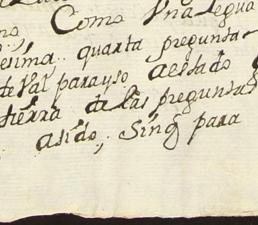 no Como Una legua
esima.. quarta pregunta
de Val parayso aestado
tierra de las preguntas
asido, Sinq para